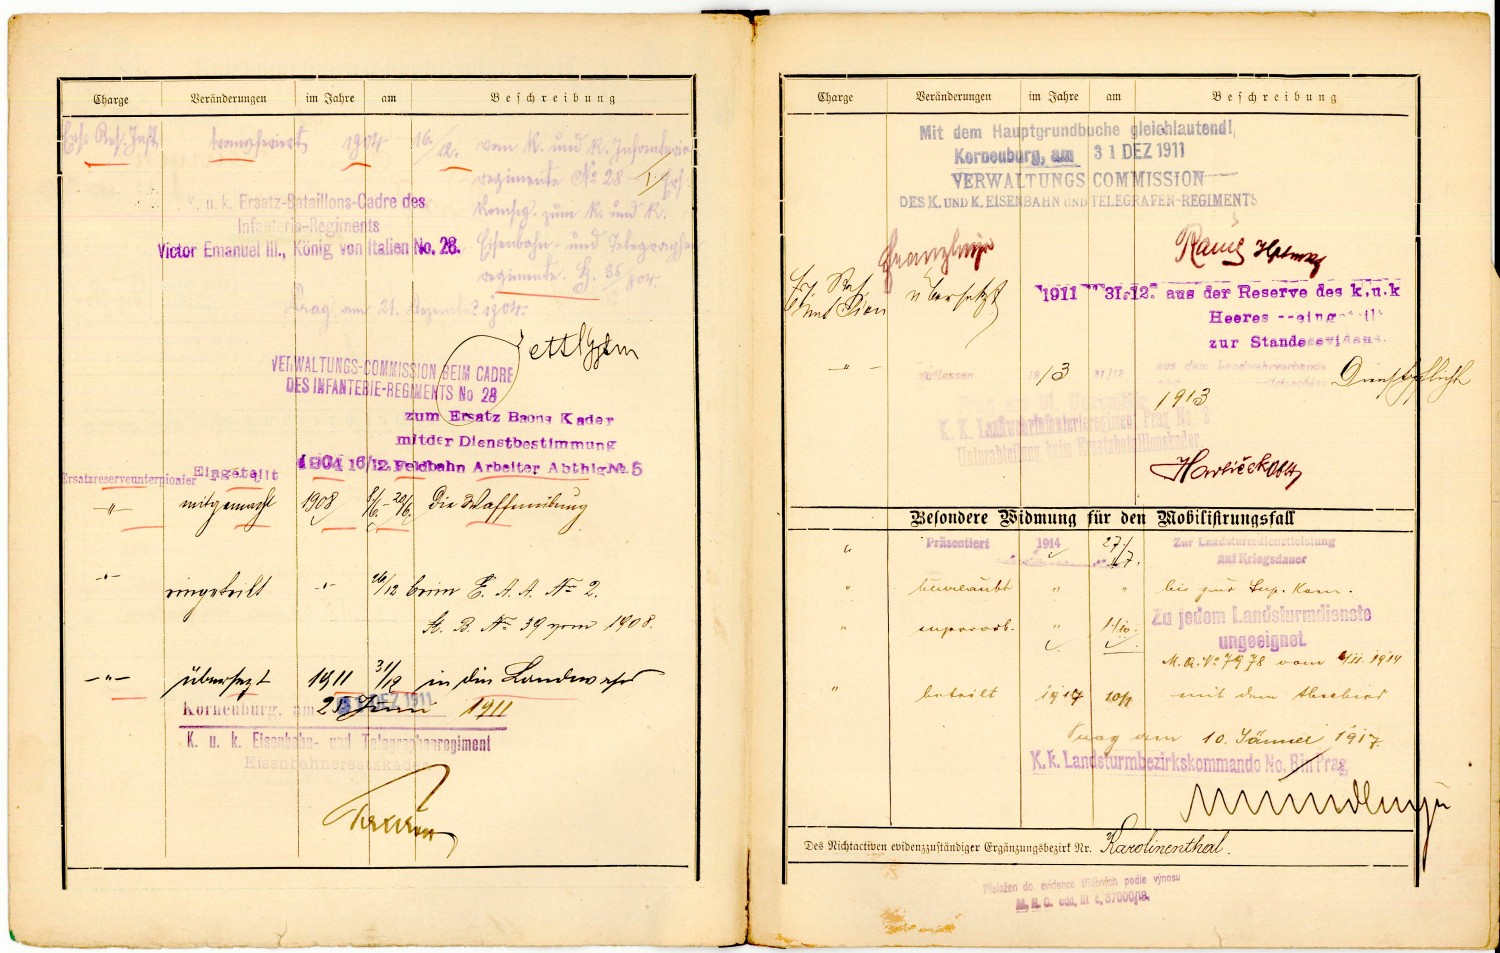 Charge Veränderungen im Jahre am Beschreibung
Ers. Res. Inft. transferiert 1904 16/12. vom k. und k. Infanterie
regimente No 28
zum k. und k.
u. k. Ersatz-Bataillons-Cadre des
Infanterie-Regiments
Victor Emanuel III., König von Italien No. 28.
Eisenbahn- und Telegraphen
regimente.
Prag, am 21. Dezember 1904.
VERWALTUNGS-COMMISSION BEIM CADRE
DES INFANTERIE-REGIMENTS No 28
zum Ersatz Baons Kader
mit der Dienstbestimmung
Ersatzreserveunterpionier Eingeteilt 1904 16/12. Feldbahn Arbeiter Abthlg No. 5
-"- mitgemacht 1908 8/6.- 20/6. die Waffenübung
-"- eingeteilt -"- 26/12 beim E. A. A. No 2.
K. B. No 39 vom 1908.
-"- übersetzt 1911 31/12 in die Landwehr
Korneuburg, am 31 DEZ 1911 1911
K. u. k. Eisenbahn- und Telegraphenregiment
Eisenbahnersatzkader
Charge Veränderungen im Jahre am Beschreibung
Mit dem Hauptgrundbuche gleichlautend!
Korneuburg, am 31 DEZ 1911
VERWALTUNGS COMMISSION
DES K. UND K. EISENBAHN UND TELEGRAFEN-REGIMENTS
übersetzt 1911 31.12. aus der Reserve des k.u.k
Heeres --eingeteilt
zur Standesevidenz
-"- entlassen 1913 31/12 aus dem Landwehrverbande
Dienstpflicht
1913
K. K. Landwehrinfanterieregiment Prag No. 8
Unterabteilung beim Ersatzbataillonskader.
Besondere Widmung für den Mobilisirungsfall
" Präsentiert 1914 27./7. Zur Landsturmdienstleistung
auf Kriegsdauer
" beurlaubt " " bis zur Sup. Kom.
" superarb. " 1./10. Zu jedem Landsturmdienste
ungeeignet.
M. A. No 7978 vom 4/11. 1914
" beteilt 1917 10/1 mit dem Abschied
Prag am 10. Jänner 1917.
K. k. Landsturmbezirkskommando No. 8 in Prag
Des Nichtactiven evidenzzuständiger Ergänzungsbezirk Nr. Karolinenthal.
Přeložen do evidence tříděných podle výnosu
M. N. O. odd. III č. 37000/19.